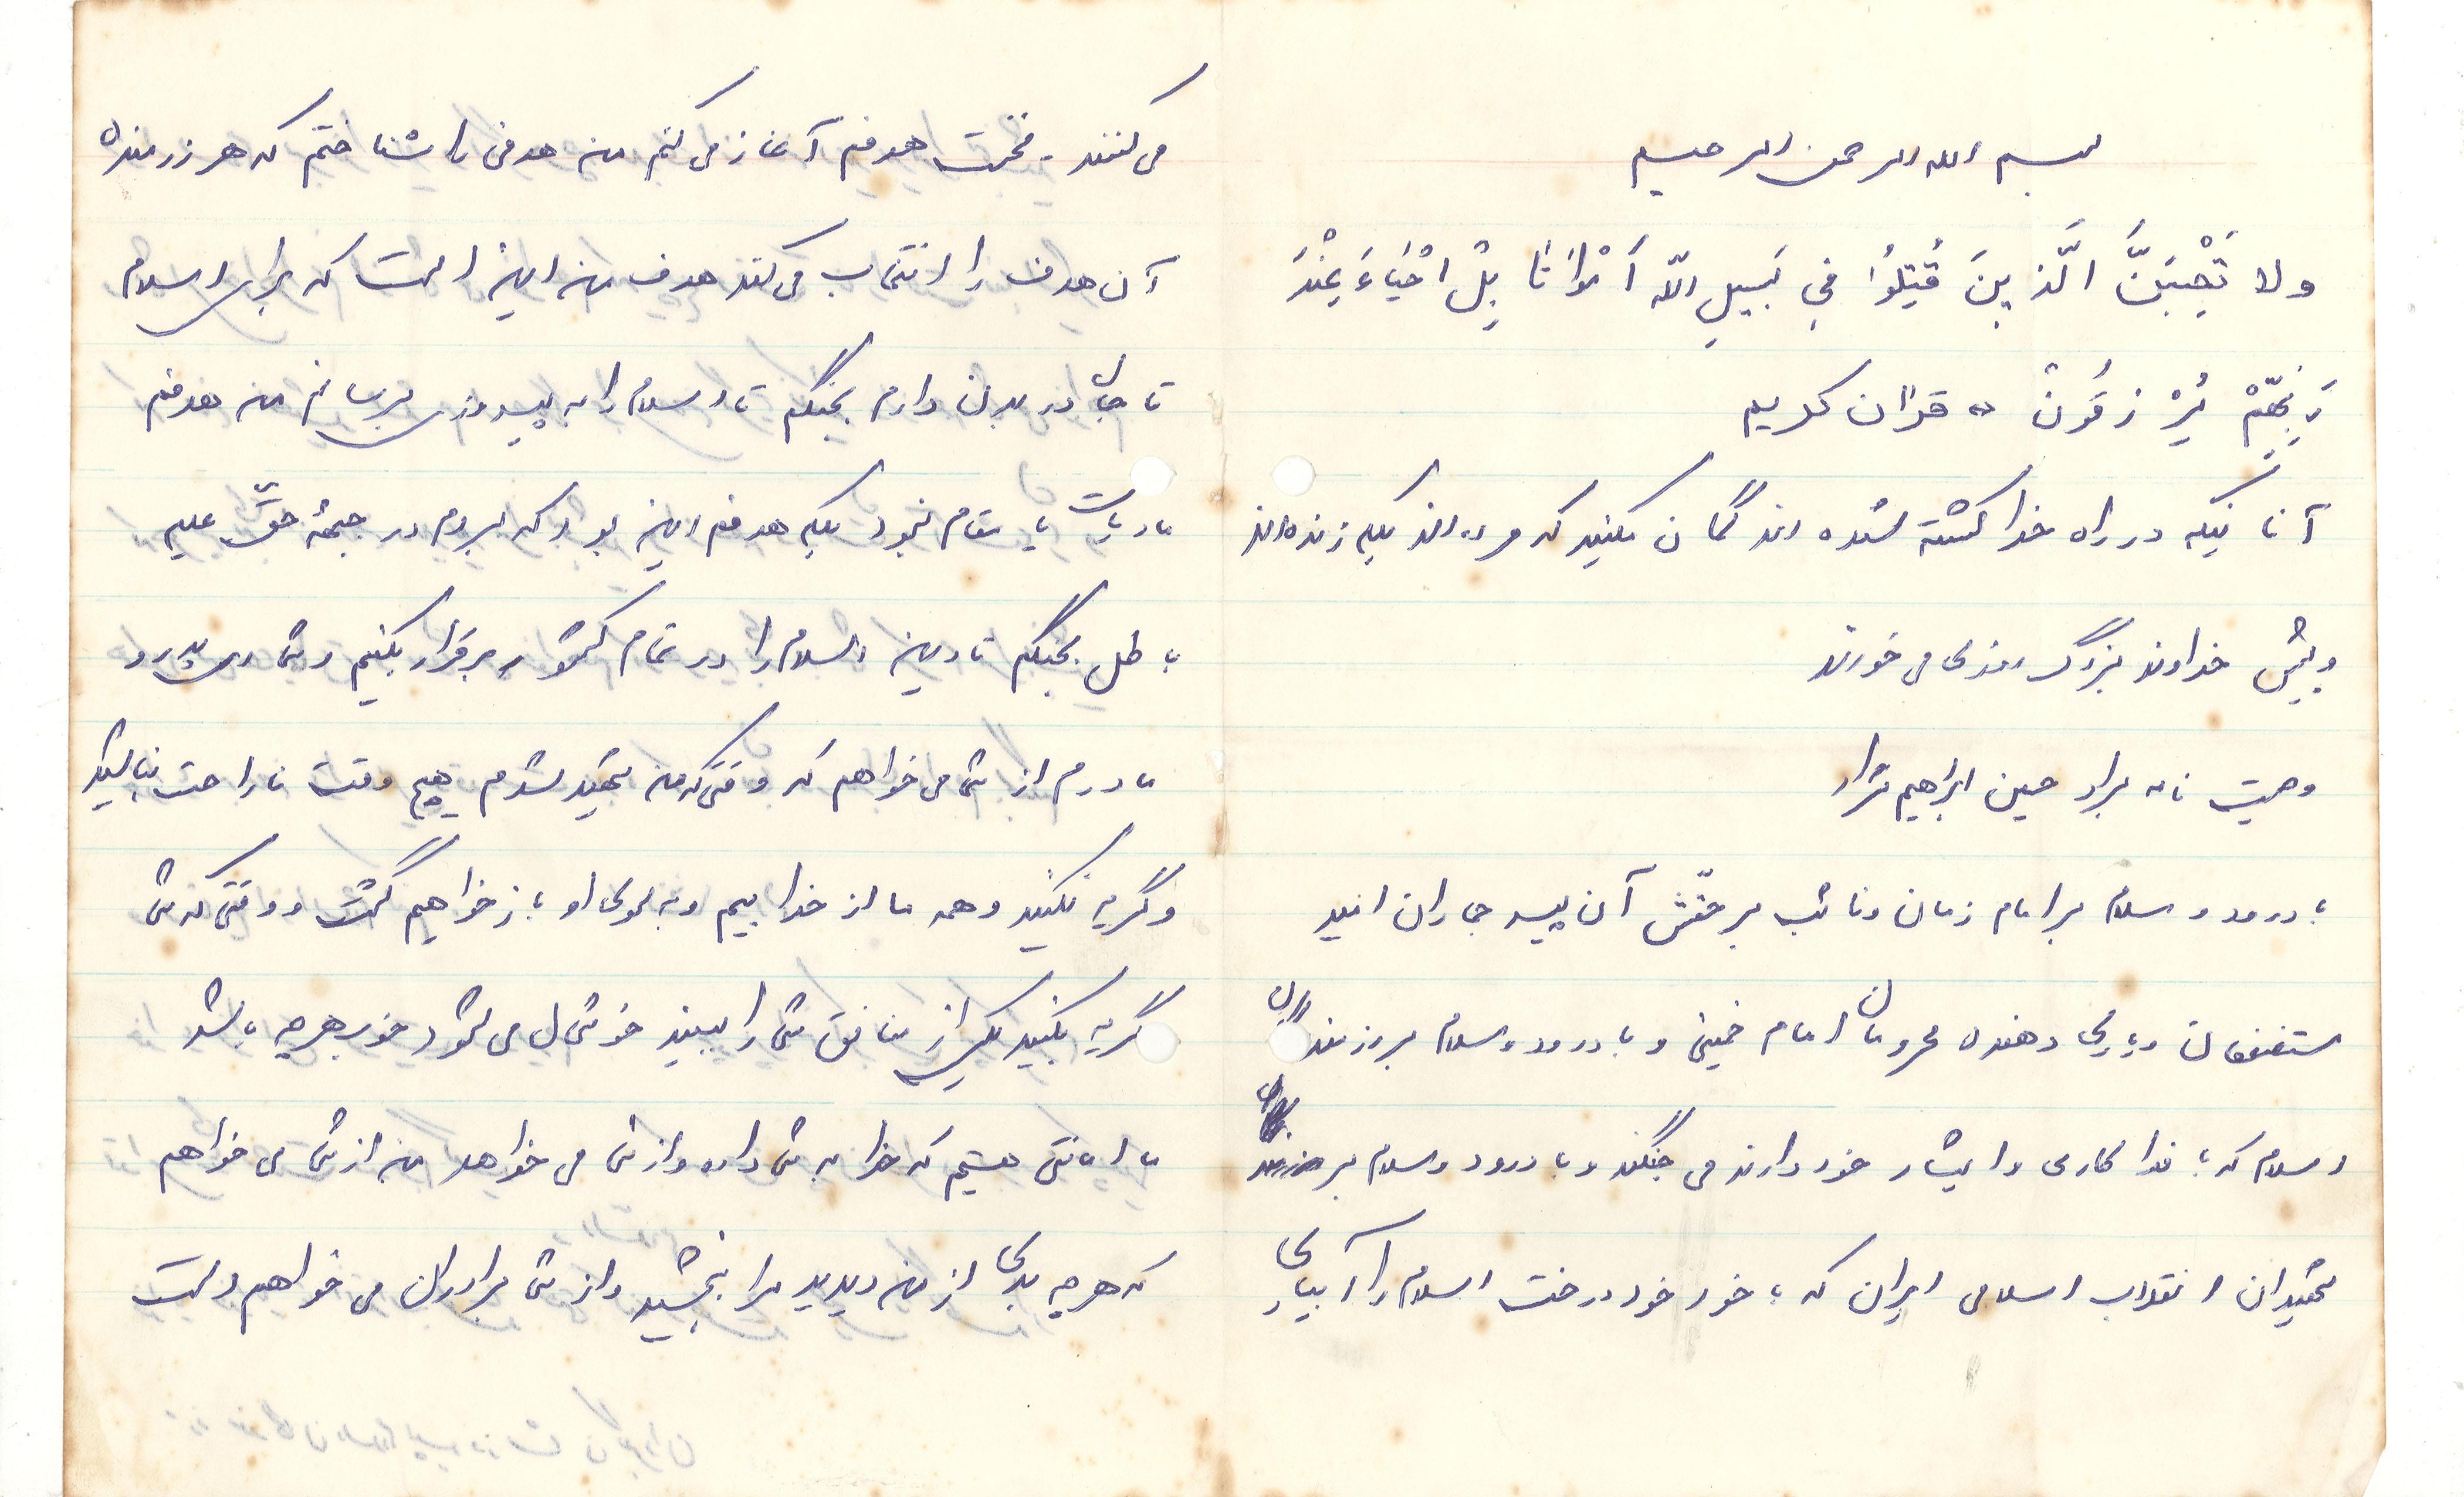 بسم الله الرحمن الرحیم
ولا تَحْسَبَنَّ الَّذینَ قُتِلُوا فی سَبیلِ اللّه اَمْواتا بَلْ اَحْیاءَ عِنْدَ
رَبِّهِمْ یُرْزَقُونْ » قرآن کریم
آنانیکه در راه خدا کشته شده اند گمان نکنید که مرده اند بلکه زنده اند
و پیش خداوند بزرگ روزی می خورند
وصیت نامه برادر حسین ابراهیم نژاد
با درود و سلام بر امام زمان و نائب بر حقّش آن پیر جماران امید
مستضعفان و یاری دهنده محرومان امام خمینی و با درود و سلام بر رزمندگان
اسلام که با فداکاری و ایثار خود دارند می جنگند و با درود و سلام بر
شهیدان انقلاب اسلامی ایران که با خون خود درخت اسلام را آبیاری
می کنند. نخست هدفم آغاز می کنم من هدفی را شناختم که هر رزمنده
آن هدف را انتخاب می کند هدف من این است که برای اسلام
تا جان در بدن دارم بجنگم تا اسلام را به پیروزی برسانم من هدفم
مادیات یا مقام نبود بلکه هدفم این بود که بروم در جبههٔ حقّ علیه
باطل بجنگم تا دین اسلام را در تمام کشور برقرار بکنیم و شما ای پدر و
مادرم از شما می خواهم که وقتی که من شهید شدم هیچ وقت ناراحت نباشید
و گریه نکنید و همه ما از خداییم و به سوی او باز خواهیم گشت و وقتی که شما
گریه بکنید یکی از منافق شما را ببیند خوشحال می شود خوب هرچه باشد
ما امانتی هستیم که خدا به شما داده و از شما می خواهد من از شما می خواهم
که هرچه بدی از من دیدید مرا ببخشید و از شما برادران می خواهم دست